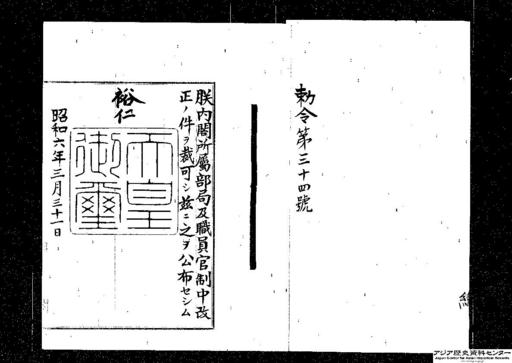 勅令第三十四號
朕内閣所屬部局及職員官制中改
正ノ件ヲ裁可シ茲ニ之ヲ公布セシム
裕仁
天皇
御璽
昭和六年三月三十一日
アジア歴史資料センター
Japan Center for Asian Historical Records